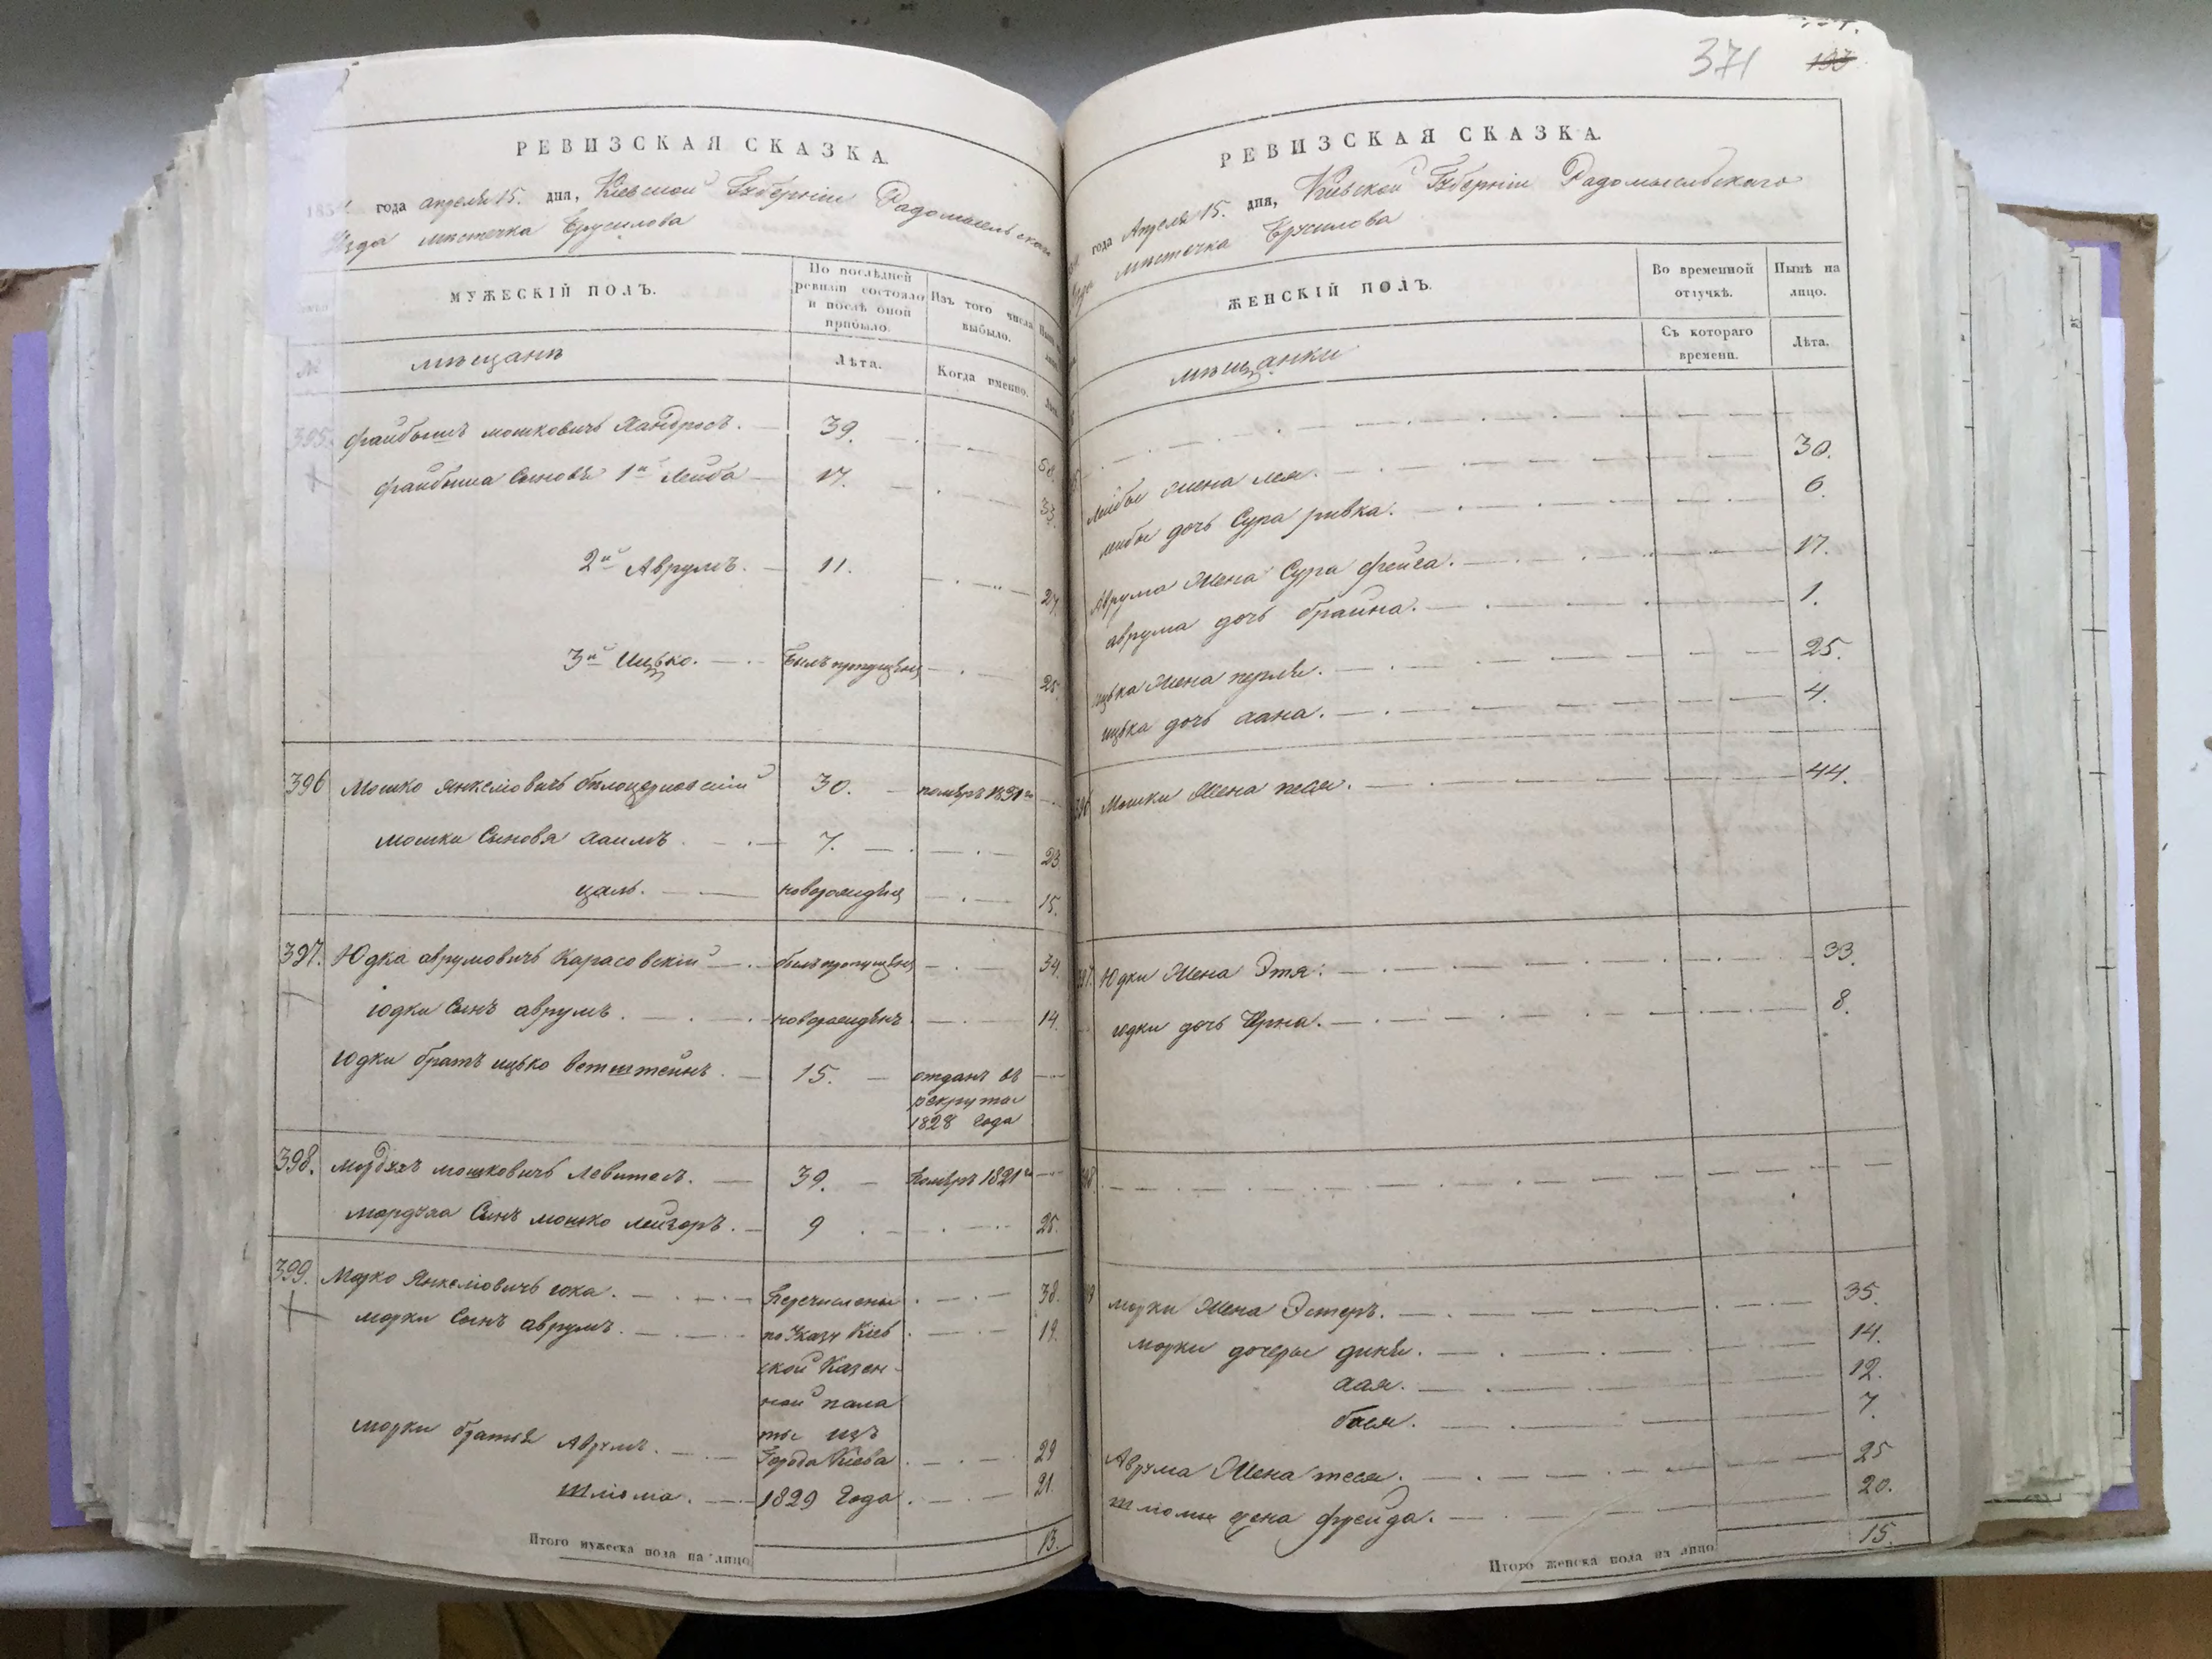 РЕВИЗСКАЯ СКАЗКА.
года апреля 15. дня, Кіевской Губерніи Радомысельскаго
Уезда местечка Брусилова
МУЖЕСКІЙ ПОЛЪ.
По послѣдней ревизіи состояло и послѣ оной прибыло.
Изъ того числа выбыло.
№
мѣщане
Лѣта.
Когда именно.
Лѣта.
395. Файбышъ мошковичъ Хандросъ. 39. 58.
Файбыша Сыновья 1й Лейба 17. 33.
2й Аврумъ. 11. 27.
3й Ицько. Былъ пропущенъ 25.
396 Мошко Янкелiовичъ белоцерковскій 30. померъ 1831го
мошки Сыновя хаимъ 7. 23
цаль. новорожденъ 15.
397. Юдка аврумовичъ Карасовскій былъ пропущенъ 34.
юдки Сынъ аврумъ. новорожденъ. 14.
Юдки братъ ицько ветштейнъ. 15. отданъ въ
рекруты
1828 года
398. мордухъ мошковичъ левитасъ. 39. Померъ 1821го
мордуха Сынъ мошко лейзоръ. 9 25.
399. Морко Янкелiовичъ юка. Перечислены 38.
морки Сынъ аврумъ. по Указу Кіев 19.
ской Казен-
ной пала
морки братья Аврумъ. ты изъ
Города Кіева 29
шліома. 1829 Года 21.
Итого мужеска пола на лицо 13.
371
133
РЕВИЗСКАЯ СКАЗКА.
года Апреля 15. дня, Кіевской Губерніи Радомысельскаго
местечка Брусилова
ЖЕНСКІЙ ПОЛЪ.
Во временной отлучкѣ.
Нынѣ на лицо.
мѣщанки
Съ котораго времени.
Лѣта.
Лейбы Жена лея. 30.
лейбы дочь Сура ривка. 6.
Аврума Жена Сура фейга. 17.
аврума дочь брайна. 1.
ицька Жена перля. 25.
ицька дочь хана. 4.
396 Мошки Жена песя. 44.
397. Юдки Жена Этя. 33.
юдки дочь Черна. 8.
398.
морки Жена Эстеръ. 35.
морки дочеры диня. 14.
хая. 12.
бася. 7.
Аврума Жена тося. 25
шліомы жена фрейда. 20.
Итого женска пола на лицо 15.